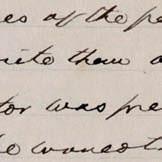 es of the pe
rite them a
tor was pre
he wanted t